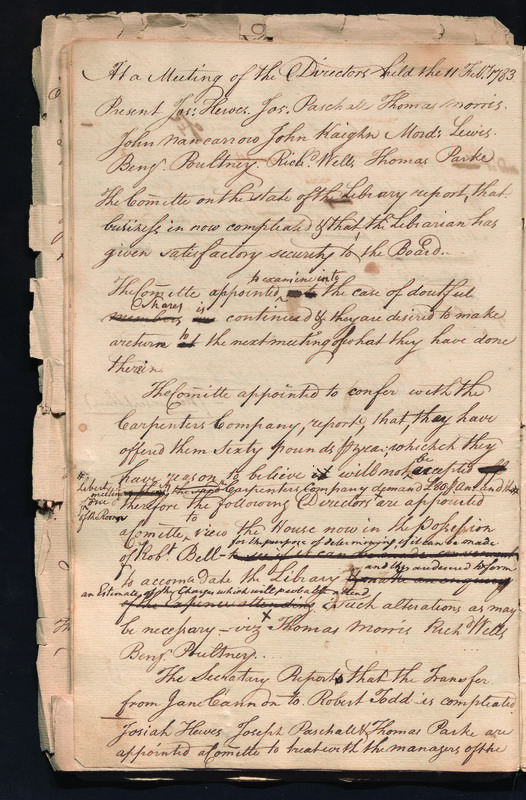 At a Meeting of the Directors held the 11 Feb. 1783
Present Jos: Hewes. Jos. Paschall. Thomas Morris.
John Nancarrow John Kaighn Mord: Lewis.
Benj. Poultney. Richd. Wells Thomas Parke
The Comittee on the state of the Library report, that
business in now compleated & that the Librarian has
given satisfactory security to the Board..
to examine into
The Comittee appointed the case of doutful
Shares is
members continued & they are desired to make
areturn to at the next meeting of what they have done
therein.
The Comittee appointed to confer with the
Carpenters Company, report that they have
offered them Sixty Pounds year; which they
have reason to believe it will not be excepted
liberty meeting in the said Carpenters Company demand and the
one of the Rooms
therefore the following Directors are appointed
acomittee to view the House now in the Possession
for the purpose of determining if it can be made
of Robt. Bell
and they are desired to form
to accomadate the Library to make an enquiry
an Estimate of the Charges which will probably attend
of the Expence attending such alterations as may
be necessary - viz Thomas Morris Richd. Wells
Benj. Poultney..
The Secratary Reports that the Transfer
from Jane Cannon to Robert Todd is compleated
Josiah Hewes Joseph Paschall & Thomas Parke are
appointed a Comittee to treat with the managers of the